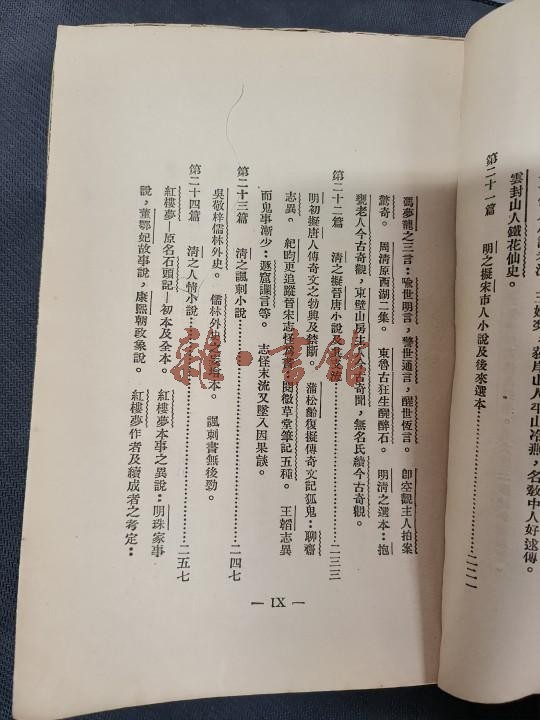 雲封山人鐵花仙史。
第二十一篇　明之擬宋市人小說及後來選本…………二二一
馮夢龍之三言：喻世明言，警世通言，醒世恆言。　即空觀主人拍案
驚奇。　周清原西湖二集。　東魯古狂生醉醒石。　明清之選本：抱
甕老人今古奇觀，東壁山房主人今古奇聞，無名氏續今古奇觀。
第二十二篇　清之擬晉唐小說及其支流…………二三三
明初擬唐人傳奇文之勃興及禁斷。　蒲松齡復擬傳奇文記狐鬼：聊齋
志異。　紀昀更追蹤晉宋志怪爲書：閱微草堂筆記五種。　王韜志異
而鬼事漸少：遯窟讕言等。　志怪末流又墜入因果談。
第二十三篇　清之諷刺小說…………二四七
吳敬梓儒林外史。　儒林外史 本。　諷刺書無後勁。
第二十四篇　清之人情小說…………二五七
紅樓夢—原名石頭記—初本及全本。　紅樓夢本事之異說：明珠家事
說，董鄂妃故事說，康熙朝政象說。　紅樓夢作者及續成者之考定：
— IX —
雜·書館